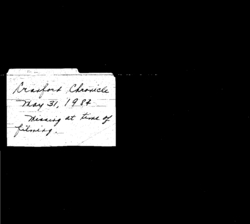 Cranford Chronicle
May 31, 1984
Missing at time of
filming.